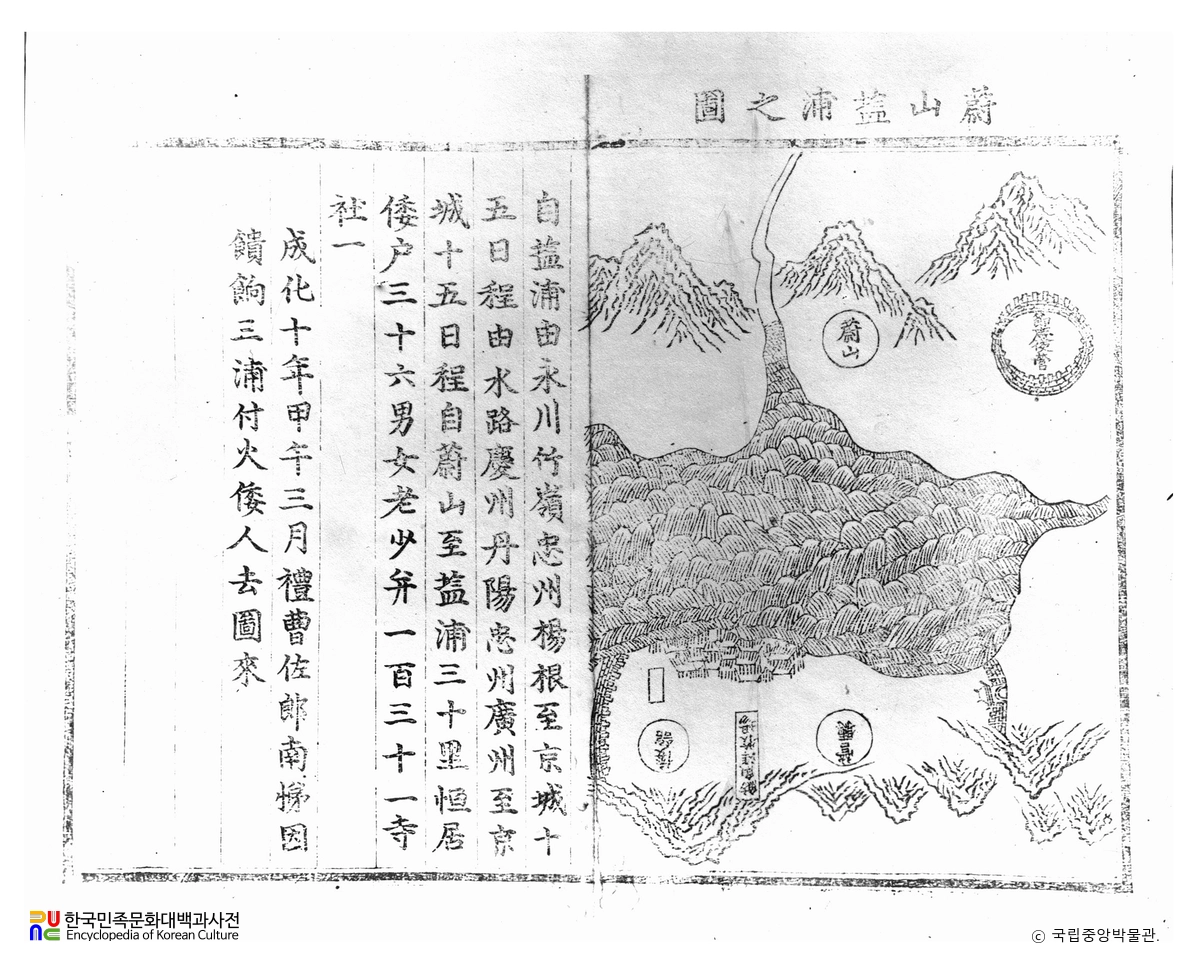 蔚山盐浦之圖
蔚山
自盐浦由永川竹嶺忠州楊根至京城十
五日程由水路慶州丹陽忠州廣州至京
城十五日程自蔚山至盐浦三十里恒居
倭户三十六男女老少并一百三十一寺
社一
成化十年甲午三月禮曹佐郎南悌因
饋餉三浦付火倭人去圖來
한국민족문화대백과사전
Encyclopedia of Korean Culture
ⓒ 국립중앙박물관.